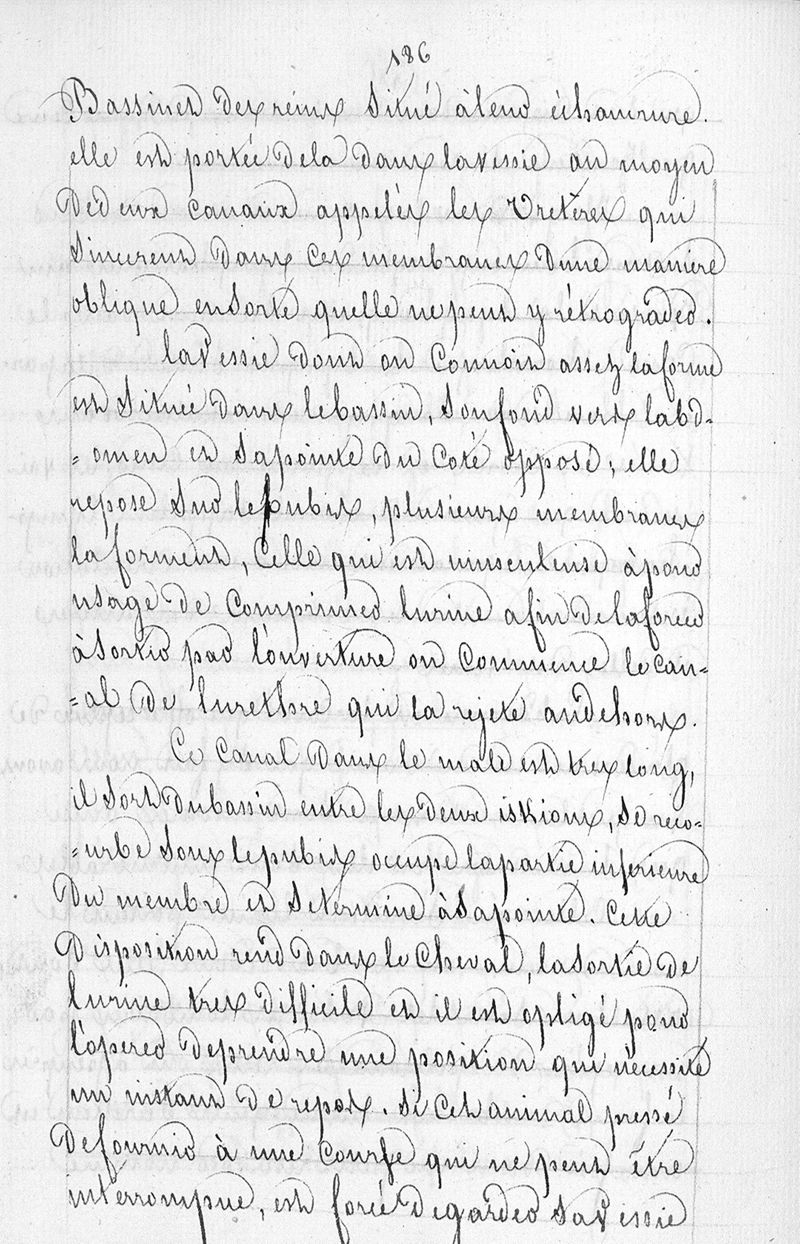 186
Bassinet des reins situé à leur échancrure.
elle est portée dela dans lavessie au moyen
Dedeux canaux appelés les Ureteres qui
Sinserent dans ces membranes Dune maniere
oblique ensorte quelle nepeut y rétrograder.
laVessie dont on Connoit assez laforme
est Située dans lebassin, Sonfond vers labd-
=omen et Sapointe du Coté opposé; elle
repose Sur lepubis, plusieurs membranes
la forment, Celle qui est musculeuse àpour
usage de Comprimer lurine afin delaforcer
àSortir par l'ouverture ou Commence lecan-
=al de lurethre qui la rejete audehors.
Ce Canal Dans le male est tres long,
il Sort Dubassin entre les deux iskions, Se reco-
=urbe Sous lepubis occupe lapartie inferieure
Du membre et Setermine àSapointe. Cette
Disposition rend dans le Cheval, laSortie de
lurine tres difficile et il est opligé pour
l'operer deprendre une position qui nécessite
un instant de repos. Si Cet animal pressé
Defournir à une Course qui ne peut être
interrompue, est forcé degarder saVessie